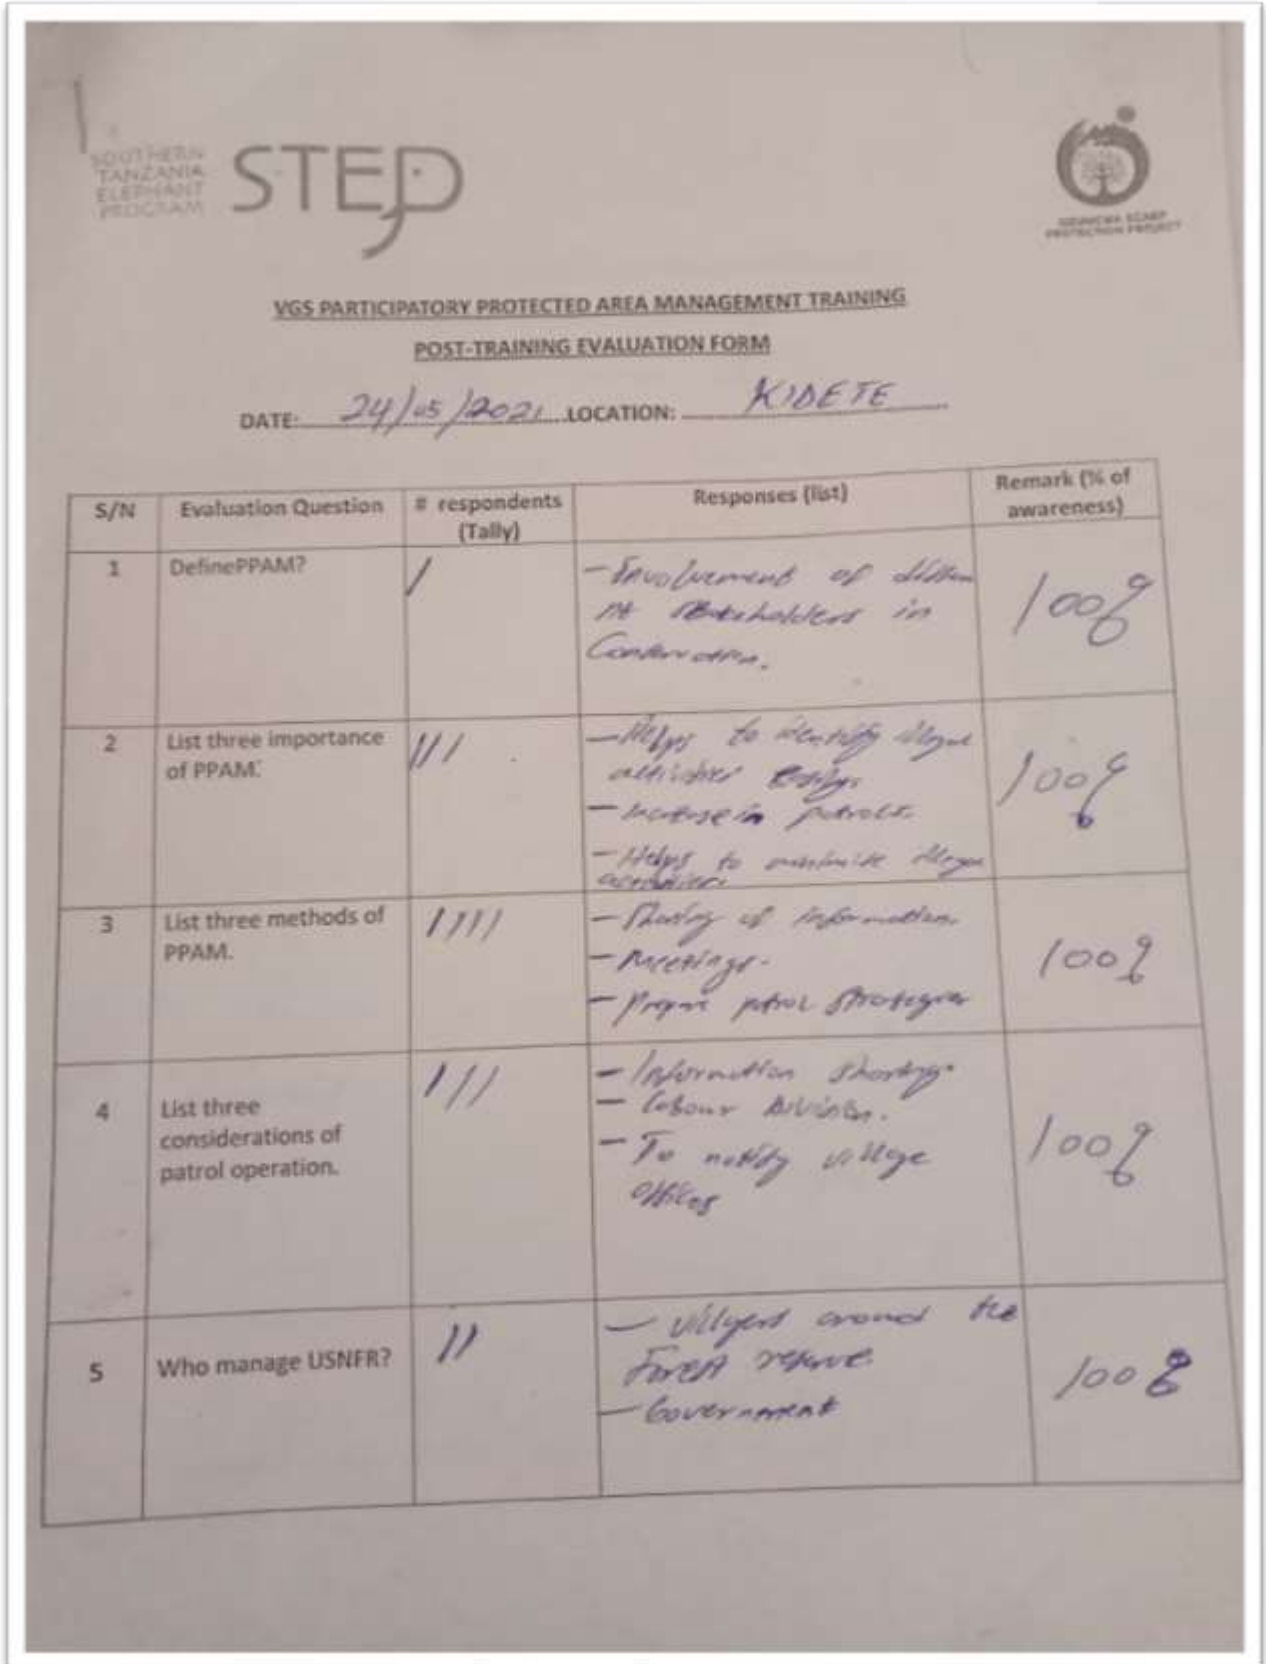 SOUTHERN
TANZANIA
ELEPHANT
PROGRAM
STEP
UDZUNGWA SCARP
PROTECTION PROJECT
VGS PARTICIPATORY PROTECTED AREA MANAGEMENT TRAINING
POST-TRAINING EVALUATION FORM
DATE: 24/05/2021 LOCATION: KIDETE
S/N
Evaluation Question
# respondents
(Tally)
Responses (list)
Remark (% of
awareness)
1
DefinePPAM?
/
- Involvement of
stakeholders in
Conservation.
100%
2
List three importance
of PPAM.
///
- Helps to identify illegal
activities
- Increase in patrols.
- Helps to minimise illegal
activities.
100%
3
List three methods of
PPAM.
////
- Sharing of information.
- Meetings.
- Prepare patrol strategies
100%
4
List three
considerations of
patrol operation.
///
- Information sharing.
- Labour division.
- To notify village
offices
100%
5
Who manage USNFR?
//
- villagers around the
Forest reserve.
- Government
100%